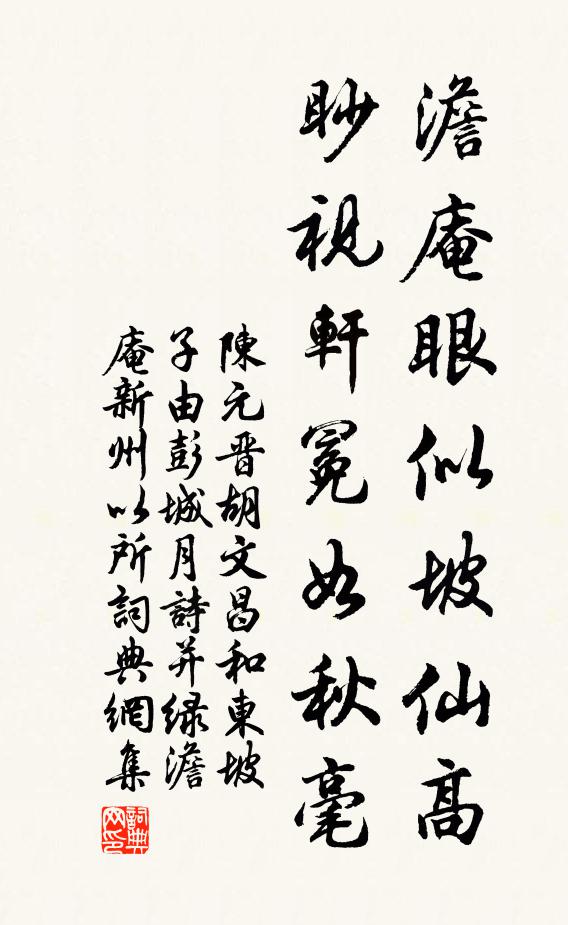 澹庵眼似坡仙高
眇視軒冕如秋毫
陳元晋胡文昌和東坡
子由彭城月詩并緑澹
庵新州以所詞典網集
詞典网印